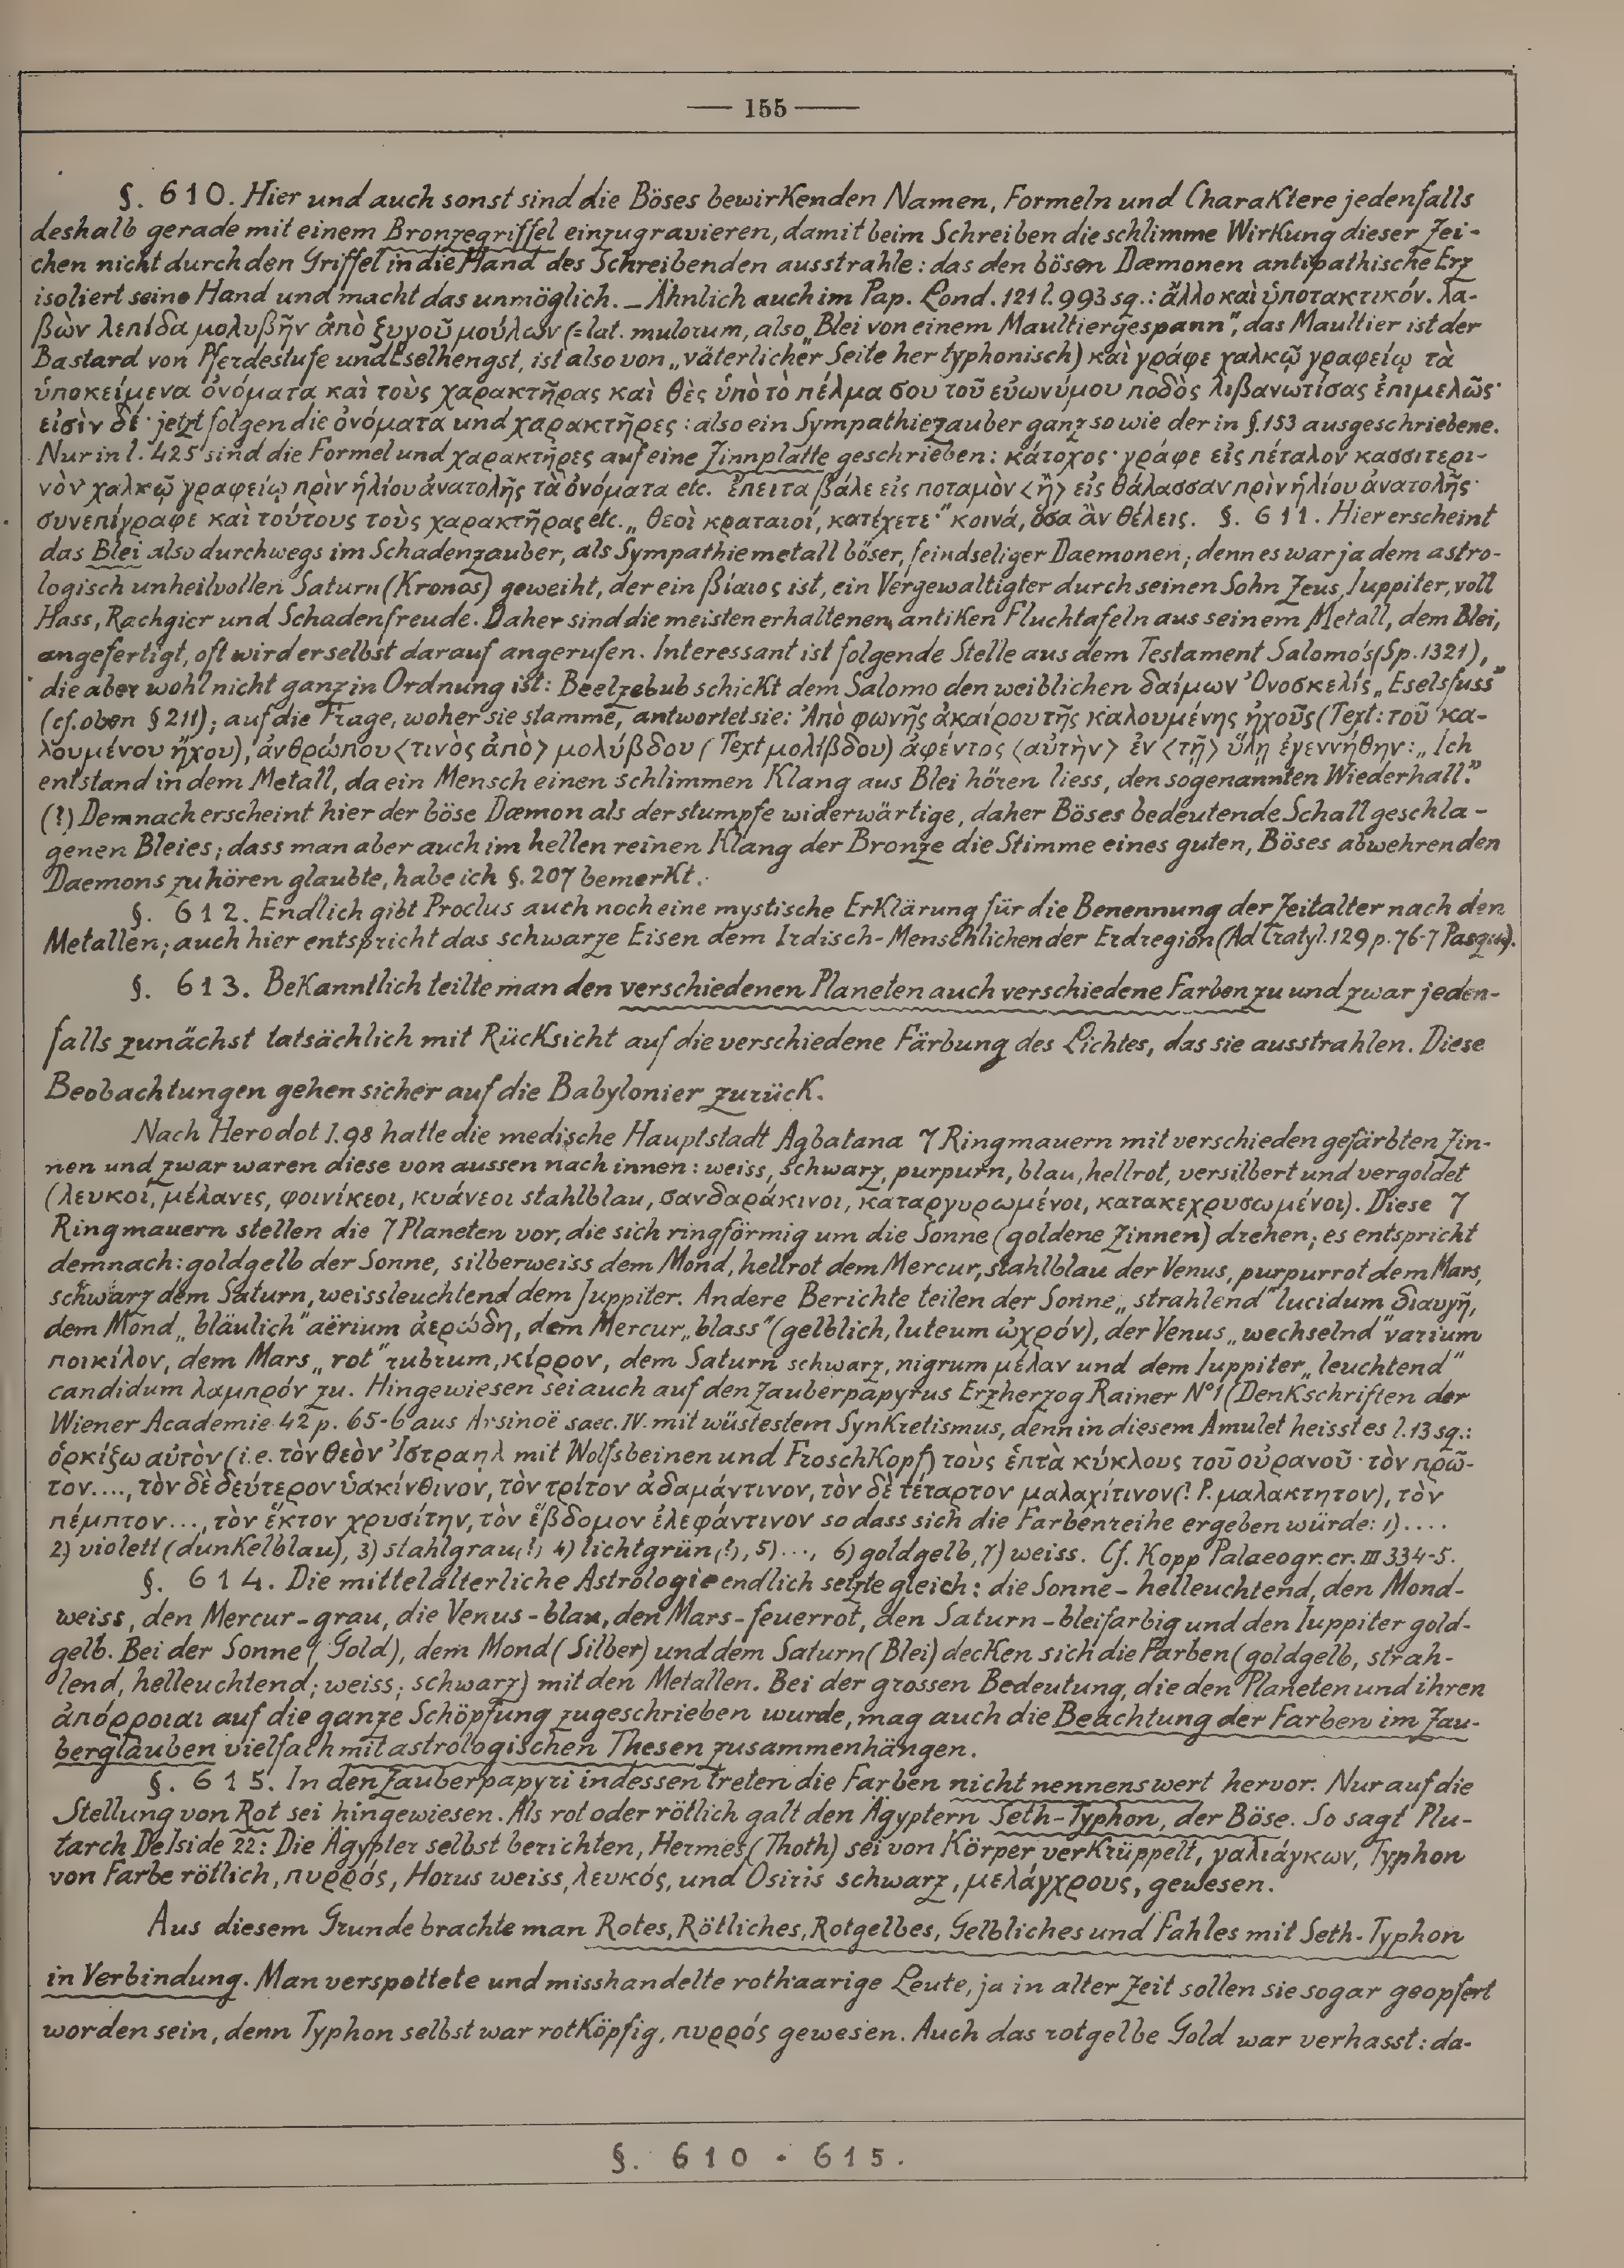 — 155 —
§. 610. Hier und auch sonst sind die Böses bewirkenden Namen, Formeln und Charaktere jedenfalls
deshalb gerade mit einem Bronzegriffel einzugravieren, damit beim Schreiben die schlimme Wirkung dieser Zei-
chen nicht durch den Griffel in die Hand des Schreibenden ausstrahle: das den bösen Dæmonen antipathische Erz
isoliert seine Hand und macht das unmöglich. – Ähnlich auch im Pap. Lond. 121 l. 993 sq.: ἄλλο καὶ ὑποτακτικόν. λα-
βὼν λεπίδα μολυβῆν ἀπὸ ξυγοῦ μούλων (= lat. mulorum, also „Blei von einem Maultiergespann", das Maultier ist der
Bastard von Pferdestufe und Eselhengst, ist also von „väterlicher Seite her typhonisch) καὶ γράφε χαλκῷ γραφείῳ τὰ
ὑποκείμενα ὀνόματα καὶ τοὺς χαρακτῆρας καὶ θὲς ὑπὸ τὸ πέλμα σου τοῦ εὐωνύμου ποδὸς λιβανωτίσας ἐπιμελῶς·
εἰσὶν δέ· jetzt folgen die ὀνόματα und χαρακτῆρες: also ein Sympathiezauber ganz so wie der in §. 153 ausgeschriebene.
Nur in l. 425 sind die Formel und χαρακτῆρες auf eine Zinnplatte geschrieben: κάτοχος· γράφε εἰς πέταλον κασσιτερι-
νὸν χαλκῷ γραφείῳ πρὶν ἡλίου ἀνατολῆς τὰ ὀνόματα etc. ἔπειτα βάλε εἰς ποταμὸν <ἢ> εἰς θάλασσαν πρὶν ἡλίου ἀνατολῆς·
συνεπίγραφε καὶ τούτους τοὺς χαρακτῆρας etc. „ θεοὶ κραταιοί, κατέχετε·" κοινά, ὅσα ἂν θέλεις. §. 611. Hier erscheint
das Blei also durchwegs im Schadenzauber, als Sympathiemetall böser, feindseliger Daemonen; denn es war ja dem astro-
logisch unheilvollen Saturn (Kronos) geweiht, der ein βίαιος ist, ein Vergewaltigter durch seinen Sohn Zeus, Iuppiter, voll
Hass, Rachgier und Schadenfreude. Daher sind die meisten erhaltenen antiken Fluchtafeln aus seinem Metall, dem Blei,
angefertigt, oft wird er selbst darauf angerufen. Interessant ist folgende Stelle aus dem Testament Salomo's (Sp. 1321),
die aber wohl nicht ganz in Ordnung ist: Beelzebub schickt dem Salomo den weiblichen δαίμων Ὀνοσκελίς „Eselsfuss"
(cf. oben § 211); auf die Frage, woher sie stamme, antwortet sie: Ἀπὸ φωνῆς ἀκαίρου τῆς καλουμένης ἠχοῦς (Text: τοῦ κα-
λουμένου ἤχου), ἀνθρώπου <τινὸς ἀπὸ> μολύβδου (Text μολίβδου) ἀφέντος <αὐτὴν> ἐν <τῇ> ὕλῃ ἐγεννήθην: „Ich
entstand in dem Metall, da ein Mensch einen schlimmen Klang aus Blei hören liess, den sogenannten Wiederhall."
(!) Demnach erscheint hier der böse Dæmon als der stumpfe widerwärtige, daher Böses bedeutende Schall geschla-
genen Bleies; dass man aber auch im hellen reinen Klang der Bronze die Stimme eines guten, Böses abwehrenden
Daemons zu hören glaubte, habe ich §. 207 bemerkt.
§. 612. Endlich gibt Proclus auch noch eine mystische Erklärung für die Benennung der Zeitalter nach den
Metallen; auch hier entspricht das schwarze Eisen dem Irdisch-Menschlichen der Erdregion (Ad Cratyl. 129 p. 76-7 Pasqu.).
§. 613. Bekanntlich teilte man den verschiedenen Planeten auch verschiedene Farben zu und zwar jeden-
falls zunächst tatsächlich mit Rücksicht auf die verschiedene Färbung des Lichtes, das sie ausstrahlen. Diese
Beobachtungen gehen sicher auf die Babylonier zurück.
Nach Herodot 1.98 hatte die medische Hauptstadt Agbatana 7 Ringmauern mit verschieden gefärbten Zin-
nen und zwar waren diese von aussen nach innen: weiss, schwarz, purpurn, blau, hellrot, versilbert und vergoldet
(λευκοί, μέλανες, φοινίκεοι, κυάνεοι stahlblau, σανδαράκινοι, καταργυρωμένοι, κατακεχρυσωμένοι). Diese 7
Ringmauern stellen die 7 Planeten vor, die sich ringförmig um die Sonne (goldene Zinnen) drehen; es entspricht
demnach: goldgelb der Sonne, silberweiss dem Mond, hellrot dem Mercur, stahlblau der Venus, purpurrot dem Mars,
schwarz dem Saturn, weissleuchtend dem Juppiter. Andere Berichte teilen der Sonne „strahlend" lucidum διαυγῆ,
dem Mond „bläulich" aërium ἀερώδη, dem Mercur „blass" (gelblich, luteum ὠχρόν), der Venus „wechselnd" varium
ποικίλον, dem Mars „rot" rubrum, κίρρον, dem Saturn schwarz, nigrum μέλαν und dem Iuppiter „leuchtend"
candidum λαμπρόν zu. Hingewiesen sei auch auf den Zauberpapyrus Erzherzog Rainer N° 1 (Denkschriften der
Wiener Academie 42 p. 65-6 aus Arsinoë saec. IV. mit wüstestem Synkretismus, denn in diesem Amulet heisst es l. 13 sq.:
ὁρκίξω αὐτὸν (i.e. τὸν θεὸν Ἰστραηλ mit Wolfsbeinen und Froschkopf) τοὺς ἑπτὰ κύκλους τοῦ οὐρανοῦ· τὸν πρῶ-
τον...., τὸν δὲ δεύτερον ὑακίνθινον, τὸν τρίτον ἀδαμάντινον, τὸν δὲ τέταρτον μαλαχίτινον (! P. μαλακτητον), τὸν
πέμπτον..., τὸν ἕκτον χρυσίτην, τὸν ἕβδομον ἐλεφάντινον so dass sich die Farbenreihe ergeben würde: 1)....
2) violett (dunkelblau), 3) stahlgrau (!), 4) lichtgrün (!), 5)..., 6) goldgelb, 7) weiss. Cf. Kopp Palaeogr. cr. III 334-5.
§. 614. Die mittelalterliche Astrologie endlich setzte gleich: die Sonne - helleuchtend, den Mond-
weiss, den Mercur - grau, die Venus - blau, den Mars - feuerrot, den Saturn - bleifarbig und den Iuppiter gold-
gelb. Bei der Sonne (Gold), dem Mond (Silber) und dem Saturn (Blei) decken sich die Farben (goldgelb, strah-
lend, helleuchtend; weiss; schwarz) mit den Metallen. Bei der grossen Bedeutung, die den Planeten und ihren
ἀπόρροιαι auf die ganze Schöpfung zugeschrieben wurde, mag auch die Beachtung der Farben im Zau-
berglauben vielfach mit astrologischen Thesen zusammenhängen.
§. 615. In den Zauberpapyri indessen treten die Farben nicht nennenswert hervor. Nur auf die
Stellung von Rot sei hingewiesen. Als rot oder rötlich galt den Ägyptern Seth-Typhon, der Böse. So sagt Plu-
tarch De Iside 22: Die Ägypter selbst berichten, Hermes (Thoth) sei von Körper verkrüppelt, γαλιάγκων, Typhon
von Farbe rötlich, πυρρός, Horus weiss, λευκός, und Osiris schwarz, μελάγχρους, gewesen.
Aus diesem Grunde brachte man Rotes, Rötliches, Rotgelbes, Gelbliches und Fahles mit Seth-Typhon
in Verbindung. Man verspottete und misshandelte rothaarige Leute, ja in alter Zeit sollen sie sogar geopfert
worden sein, denn Typhon selbst war rotköpfig, πυρρός gewesen. Auch das rotgelbe Gold war verhasst: da-
§. 610 - 615.